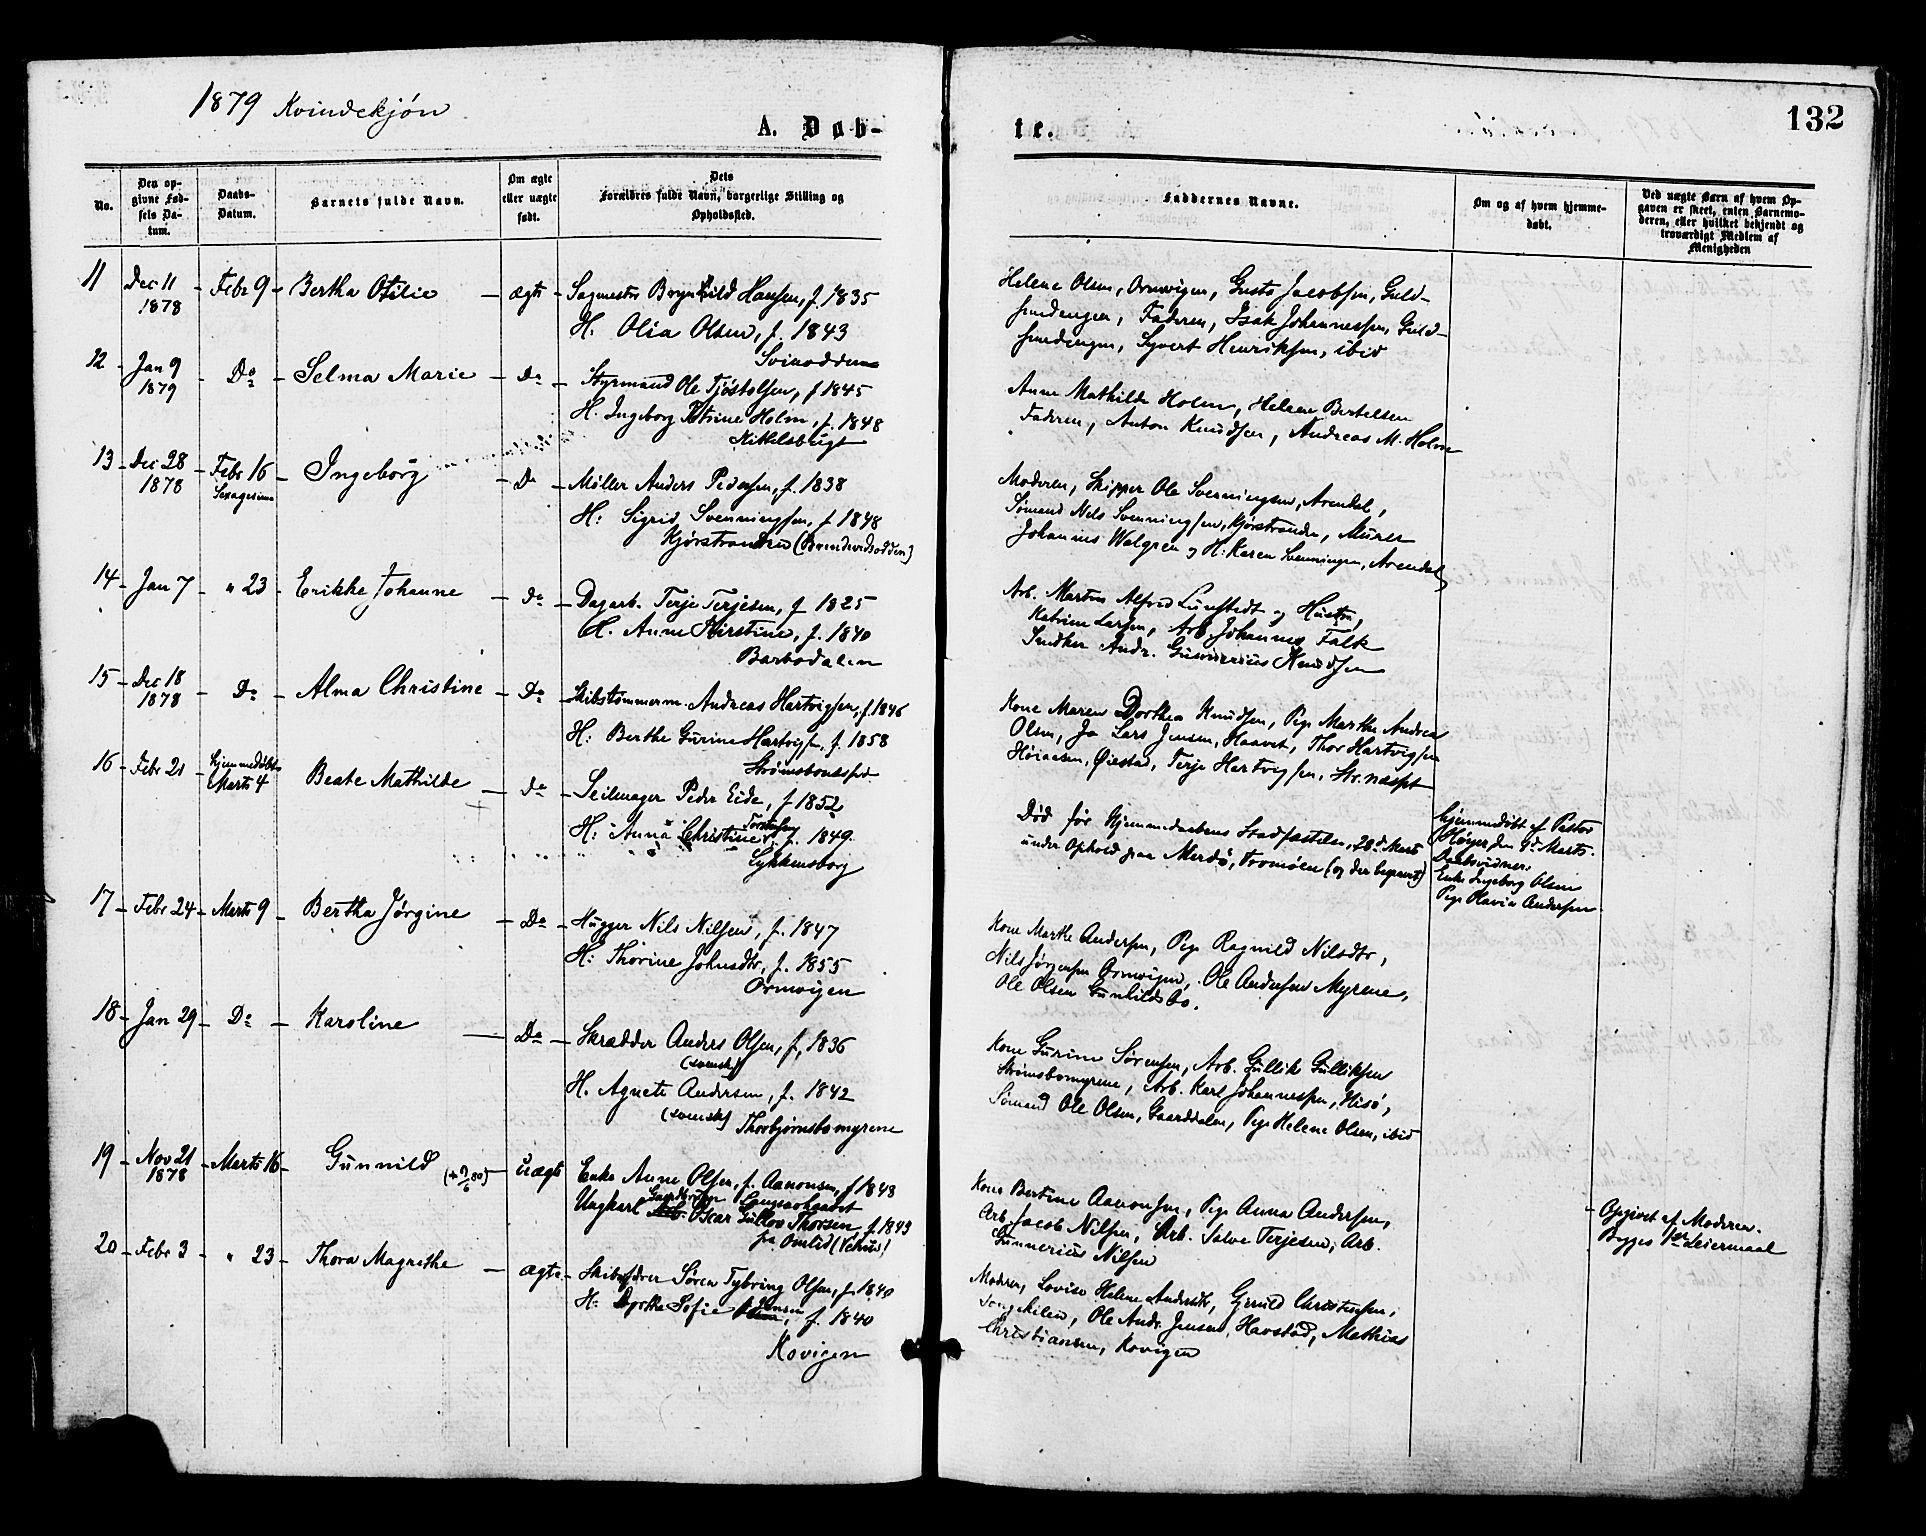 1879 Kvindekjøn
A. Døb-
te.
132
No.
Den op-
givne Fød-
sels Da-
tum.
Daabs-
Datum.
Barnets fulde Navn.
Om ægte
eller uægte
født.
Dets
Forældres fulde Navn, borgerlige Stilling og
Opholdssted.
Faddernes Navne.
Om og af hvem hjemme-
døbt.
Ved uægte Barn af hvem Op-
gaven er skeet, enten Barnemo-
deren, eller hvilket bekjendt og
troværdigt Medlem af
Menigheden
11 Dec 11 1878 Febr 9 Bertha Otilie ægte Sagmester Brynhild Hansen, f. 1835
H: Olia Olsen, f. 1843
Svinodden
Helene Olsen, Ormvigen, Gusta Jacobsen, Guld-
smedengen, Faderen, Isak Johannessen, Guld-
smedengen, Syvert Henriksen, ibid
12 Jan 9 1879 Do Selma Marie Do Styrmand Ole Tjøstolsen, f 1845
H. Ingeborg Petrine Holm, f. 1848
Kittelsbugt
Anne Mathilde Holm, Helene Bertelsen
Faderen, Anton Knudsen, Andreas M. Holm
13 Dec 28 1878 Febr 16 Sexagesima Ingeborg Do Møller Anders Pedersen, f. 1838
H: Sigrid Svenningsen, f 1848
Kjørstranden (Brendevidsodden)
Moderen, Skipper Ole Svenningsen, Arendal,
Sømand Nels Svenningsen, Kjørstranden, Murer
Johannes Walgren og H: Karen Svenningsen, Arendal
14 Jan 7 " 23 Erikke Johanne Do Dagarb. Terje Terjesen, f 1825
H. Anne Kirstine, f. 1840
Barbodalen
Arb. Martin Alfred Lunstedt og Hustru,
Katrine Larsen, Arb. Johannes Falk
Snedker Andr. Gunnerius Knudsen
15 Dec 18 1878 Do Alma Christine Do Skibstømmerm. Andreas Hartvigsen, f. 1846
H: Berthe Gurine Hartvigs., f. 1858
Strømsbonesset
Kone Maren Dorthea Knudsen, Pige Marthe Andrea
Olsen, Jo Lars Jensen, Haavet, Thor Hartvigsen
Høiaasen, Øiestad, Terje Hartvigsen, Str.næsset
16 Febr 21 Hjemmedøbt Marts 4 Beate Mathilde Do Seilmager Peder Eide, f 1852
H: Anna Christine Torstensen f. 1849.
Lykkensborg
Død før Hjemmedaabens Stadfæstelse, 28d Marts
under Ophold paa Merdø, Tromøen (og der begravet)
Hjemmedøbt af Pastor
Høyer, den 4d Marts.
Daabsvidner:
Enke Ingeborg Olsen
Pige Flavia Andersen.
17 Febr 24 Marts 9 Bertha Jørgine Do Hugger Nils Nilsen, f. 1847
H: Thorine Johnsdtr, f. 1855
Ormvigen
Kone Marthe Andersen, Pige Ragnild Nilsdtr,
Nils Jørgensen Ormvigen, Ole Andersen Myrene,
Ole Olsen Gunhildsbo.
18 Jan 29 Do Karoline Do Skrædder Anders Olsen, f, 1836
(svensk)
H. Agnete Andersen, f. 1842
(svensk) Thorbjørnsbomyrene
Kone Gurine Sørensen, Arb. Gullik Gulliksen
Strømsbomyrene, Arb. Karl Johannessen, Hisø,
Sømand Ole Olsen, Gaarddalen, Pige Helene Olsen, ibid
19 Nov 21 1878 Marts 16 Gunnild uægte Enke Anne Olsen, f. Aanonsen, f 1848
Ungkarl Oscar Gullov Thorsen f. 1843
fra Omlid
Kone Bertine Aanonsen, Pige Anna Andersen,
Arb. Jacob Nilsen, Arb. Salve Terjesen, Arb.
Gunnerius Nilsen
Opgivet af Moderen.
Begges 1ste Leiermaal
20 Febr 3 " 23 Thora Magrethe ægte Skibsfører Søren Tybring Olsen, f 1840
H: Dorthe Sofie Jensen, f. 1840
Kovigen
Moderen, Lovise Helene Andersdtr, Gjeruld Christensen,
Songekilen, Ole Andr. Jensen, Havstad, Mathias
Christiansen, Kovigen